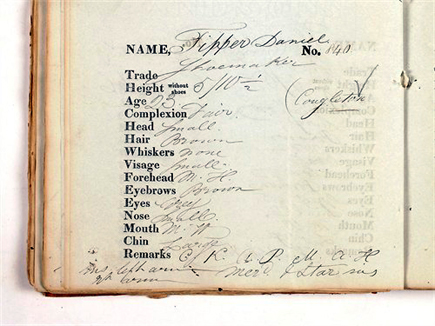 NAME, Tipper Daniel No. 840
Trade Shoemaker
Height without shoes 5/10 ½
Age 23
(Congleton)
Complexion Fair
Head Small
Hair Brown
Whiskers None
Visage Small
Forehead M. H.
Eyebrows Brown
Eyes Grey
Nose Small
Mouth M. W
Chin Large
Remarks C K. A P. M. A H
left arm mer & Star sus